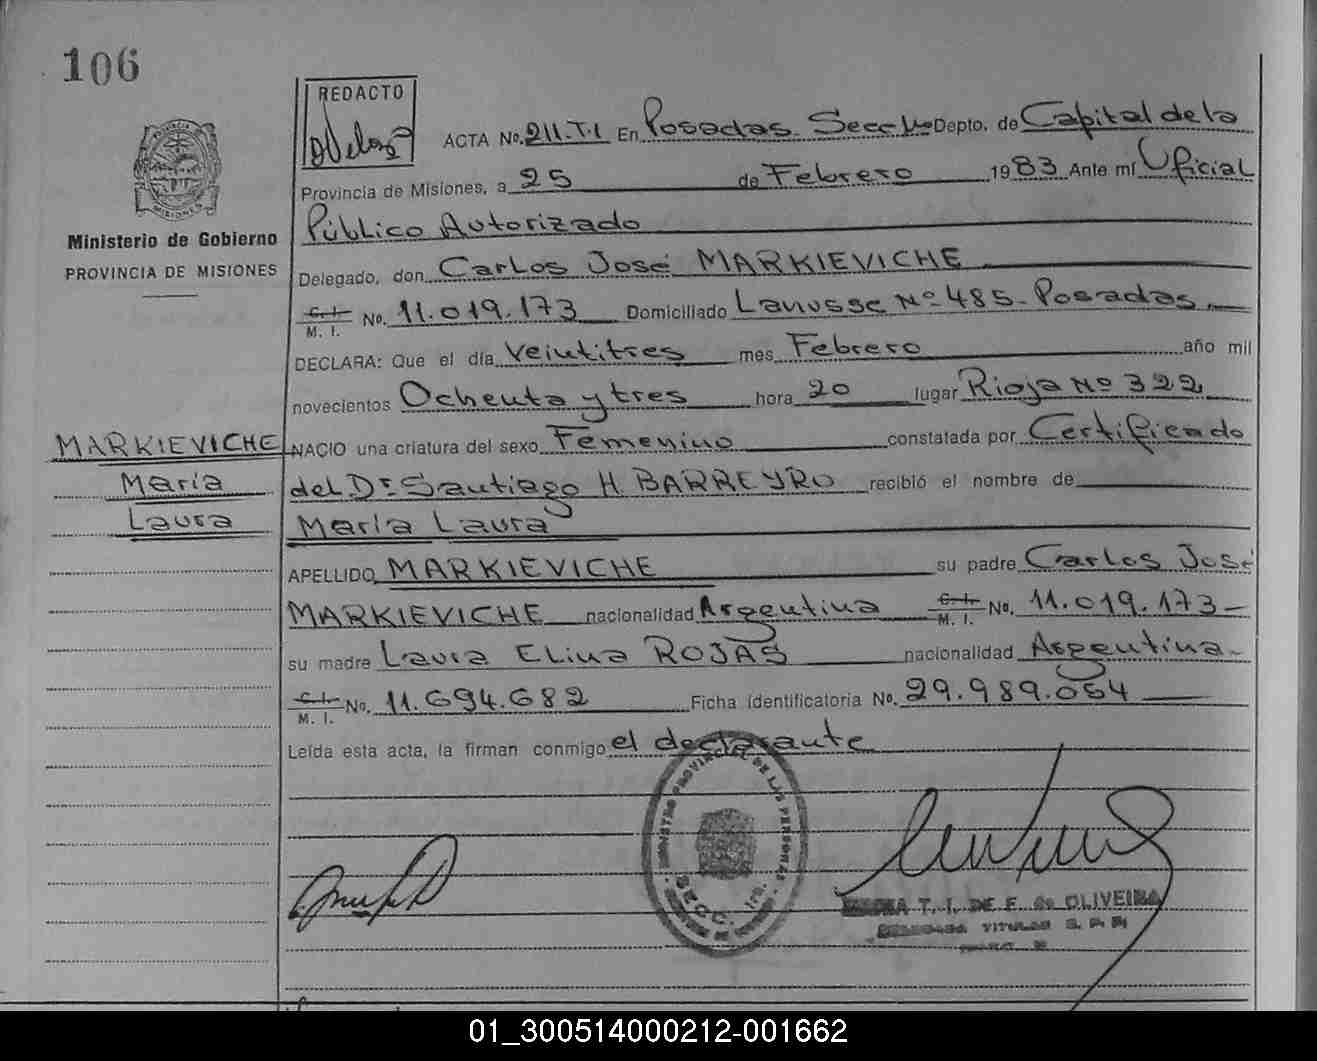 106
REDACTO
ACTA No. 211.T.I En Posadas Secc 1ra Depto. de Capital de la
Provincia de Misiones, a 25 de Febrero 1983 Ante mí Oficial
Público Autorizado
PROVINCIA
MISIONES
Ministerio de Gobierno
PROVINCIA DE MISIONES
Delegado, don Carlos José MARKIEVICHE
C. I.
M. I. No. 11.019.173 Domiciliado Lanusse Nº 485- Posadas
DECLARA: Que el día veintitres mes Febrero año mil
novecientos Ochenta y tres hora 20 lugar Rioja Nº 322
MARKIEVICHE
María
Laura
NACIO una criatura del sexo Femenino constatada por Certificado
del Dr. Santiago H BARREYRO recibió el nombre de
María Laura
APELLIDO MARKIEVICHE su padre Carlos José
MARKIEVICHE nacionalidad Argentina C. I.
M. I. No. 11.019.173-
su madre Laura Elina ROJAS nacionalidad Argentina-
C. I.
M. I. No. 11.694.682 Ficha identificatoria No. 29.989.054
Leída esta acta, la firman conmigo el declarante
REGISTRO PROVINCIAL DE LAS PERSONAS
SECC. 1ra.
T. I. DE F. de OLIVEIRA
TITULAR R. P. P.
01_300514000212-001662